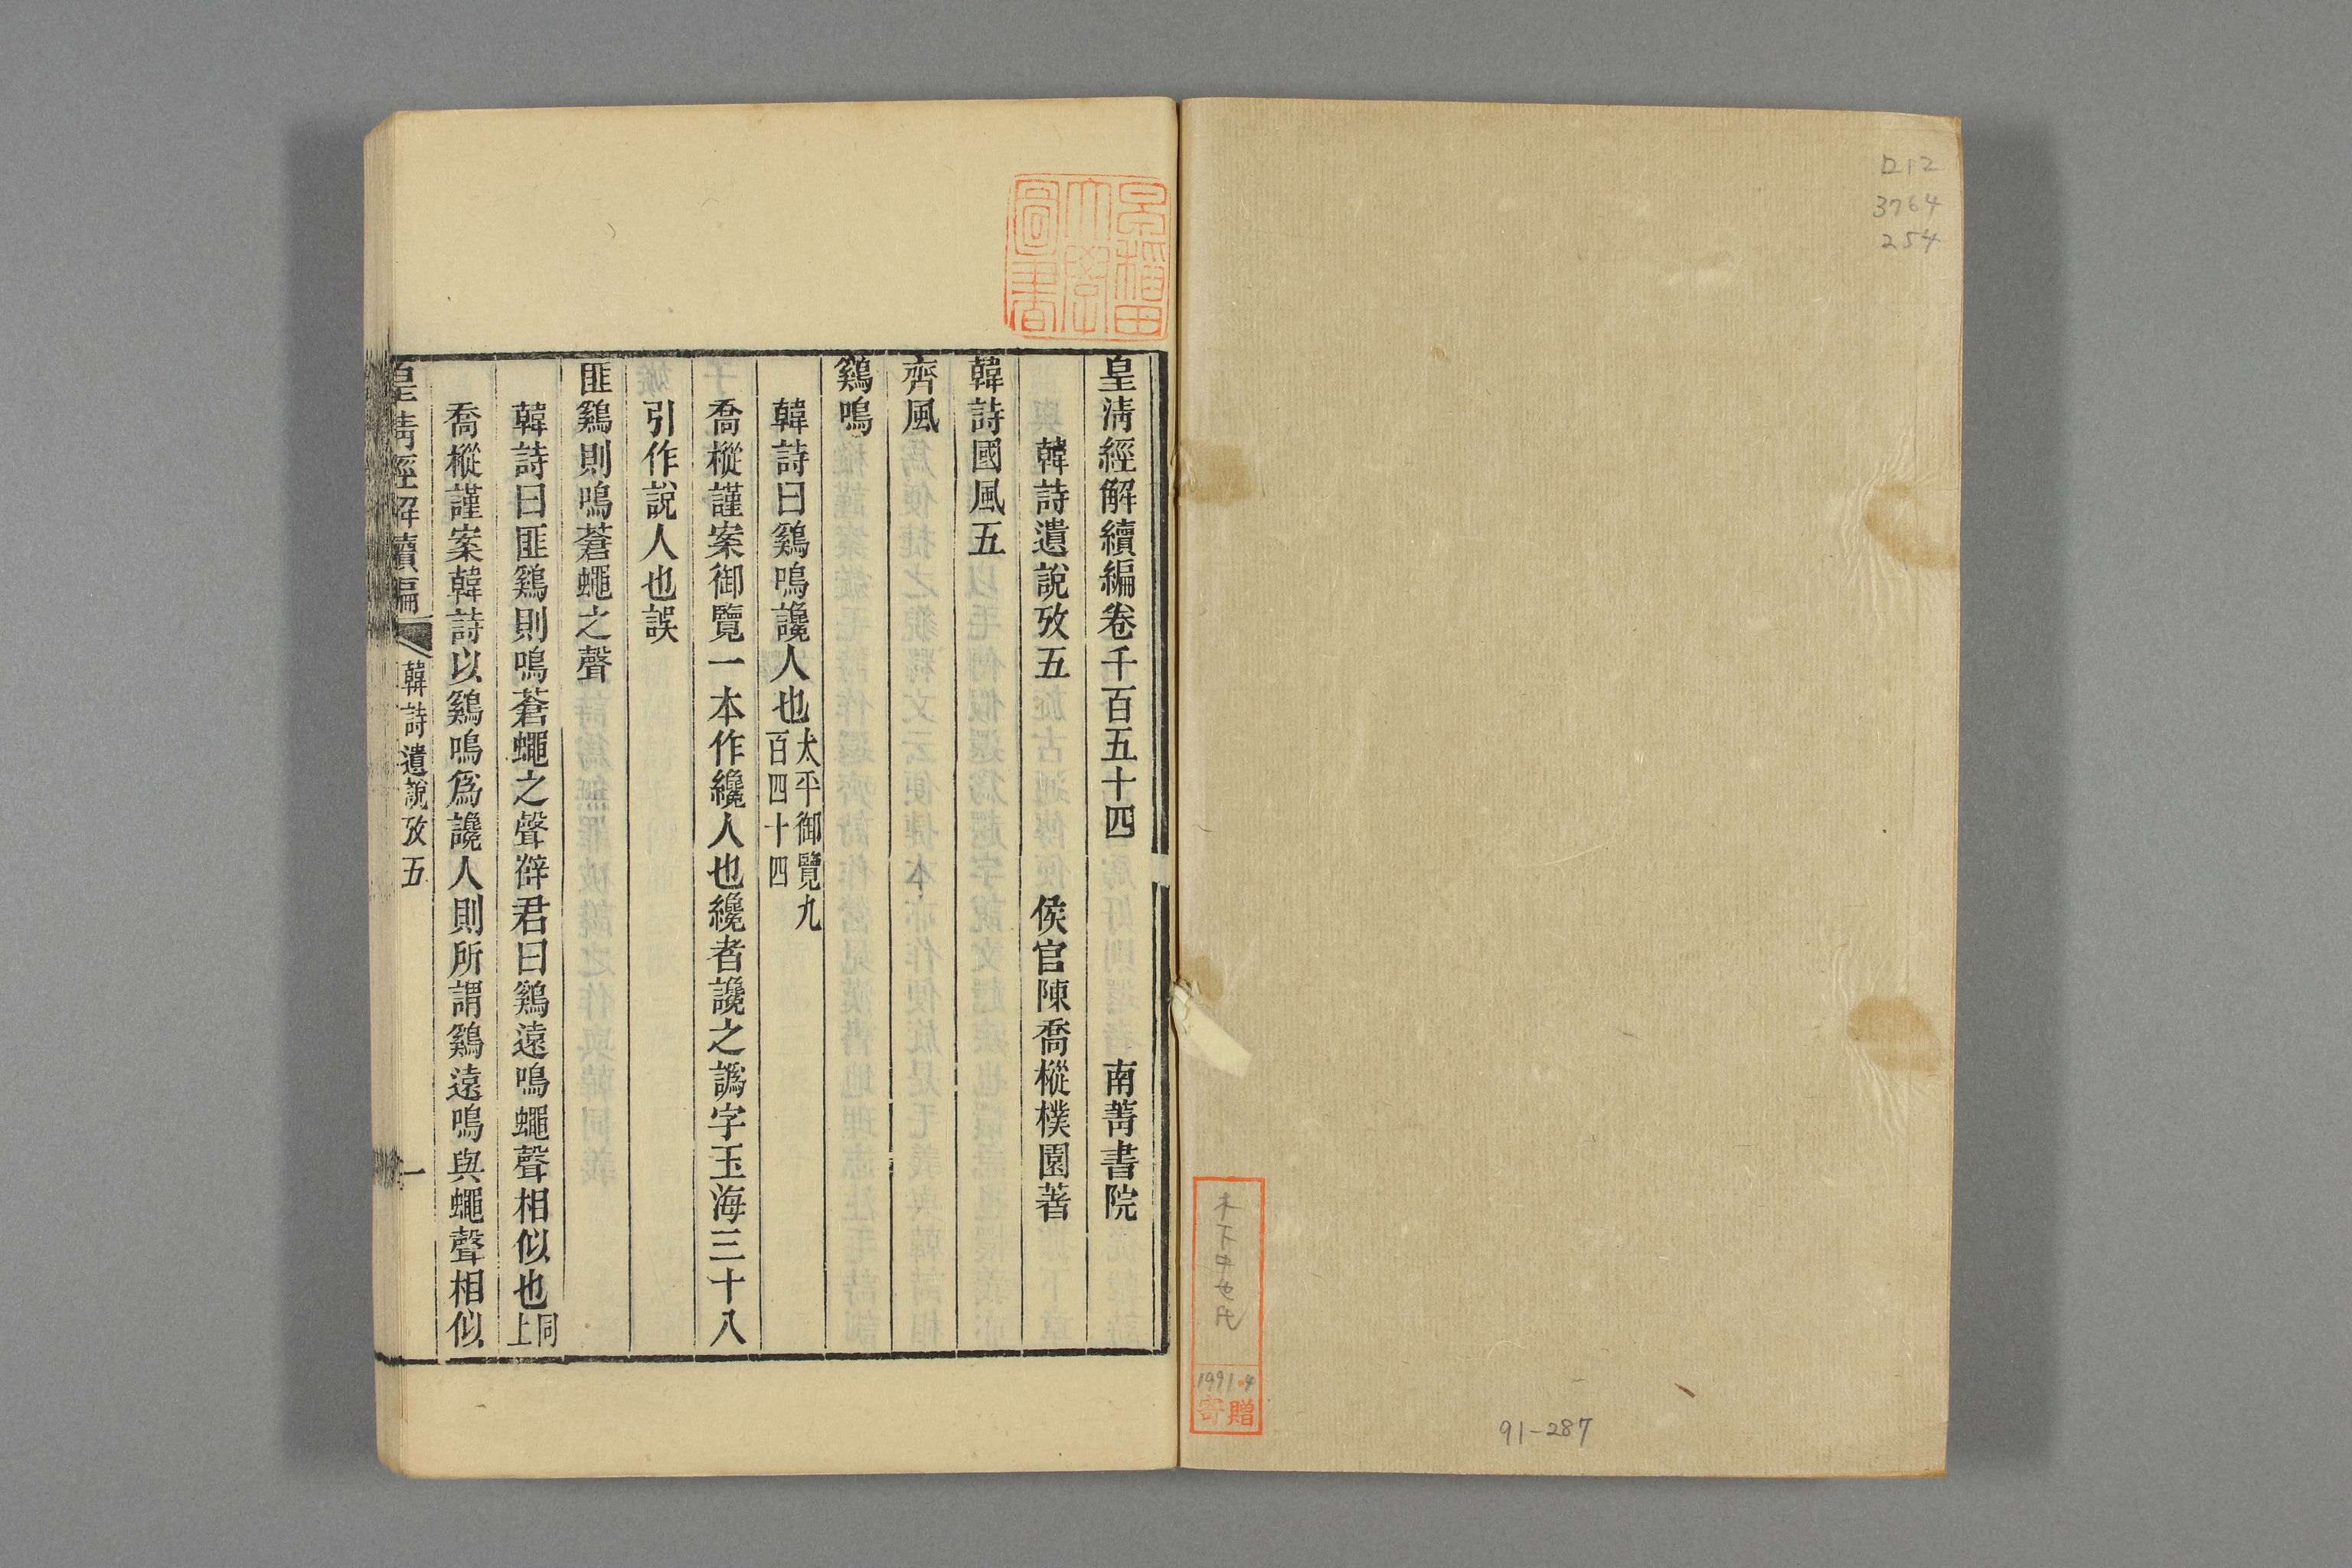 ロ12
3764
254
木下中世氏
1991.4
寄贈
91-287
早稻田大學圖書
皇淸經解續編卷千百五十四 南菁書院
韓詩遺說攷五 侯官陳喬樅樸園著
韓詩國風五
齊風
鷄鳴
韓詩曰鷄鳴讒人也太平御覽九百四十四
喬樅謹案御覽一本作纔人也纔者讒之譌字玉海三十八
引作說人也誤
匪鷄則鳴蒼蠅之聲
韓詩曰匪鷄則鳴蒼蠅之聲薛君曰鷄遠鳴蠅聲相似也同上
喬樅謹案韓詩以鷄鳴爲讒人則所謂鷄遠鳴與蠅聲相似
皇淸經解續編 韓詩遺說攷五 一